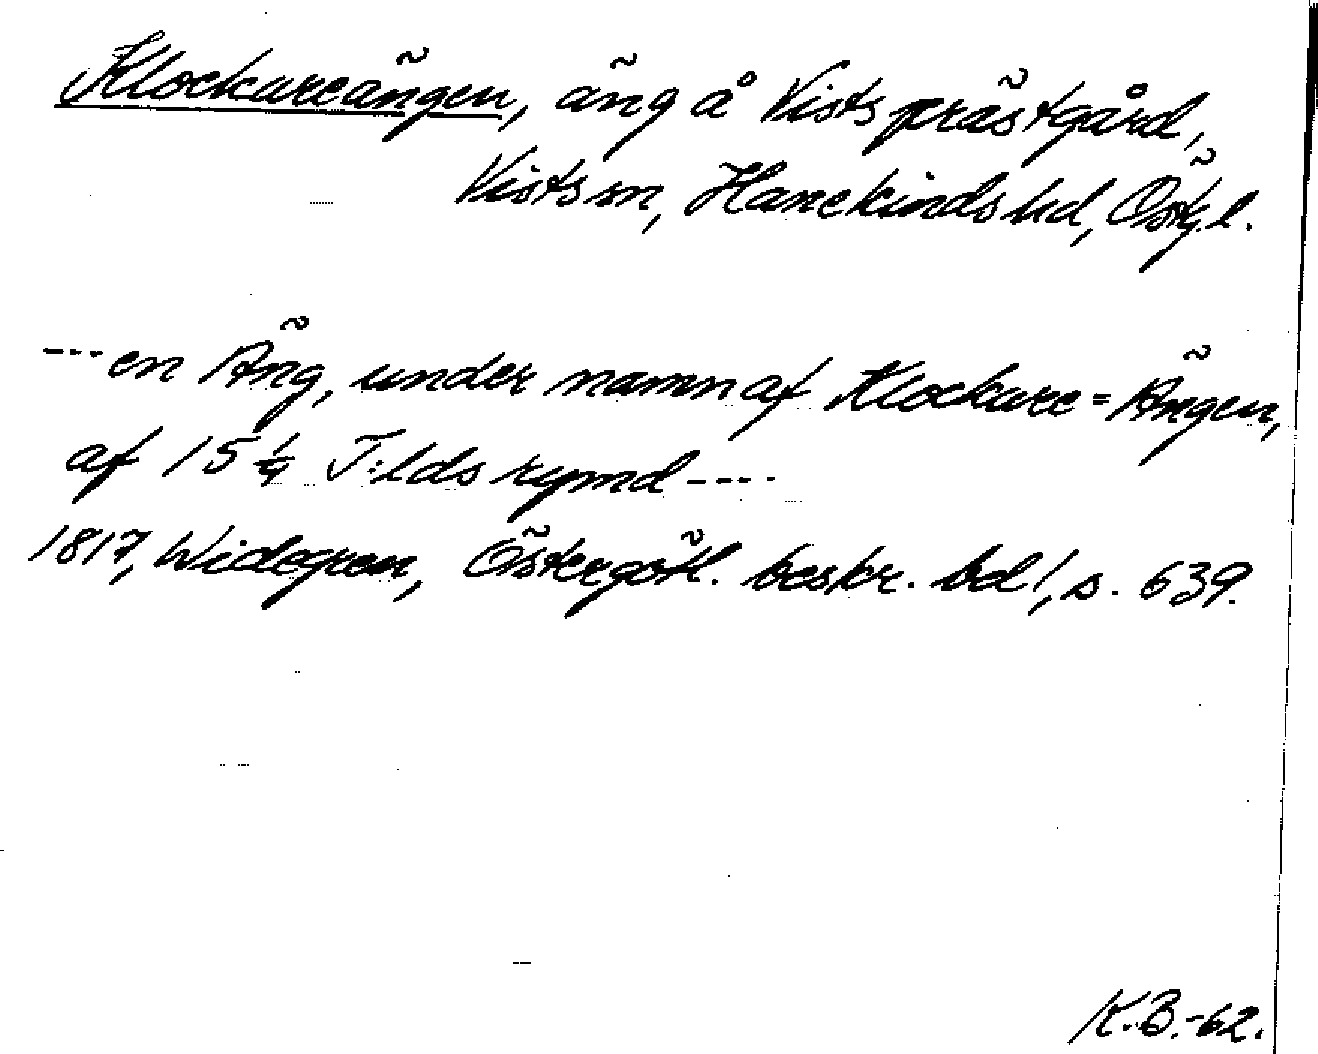 Klockareängen, äng å Vists prästgård,
Vists sn, Hanekinds hd, Östg.l.
---en Äng, under namn af Klockare=Ängen,
af 15 1/4 T:lds rymd ----
1817, Widegren, Östergötl. beskr. bd 1, s. 639.
K.B.-62.